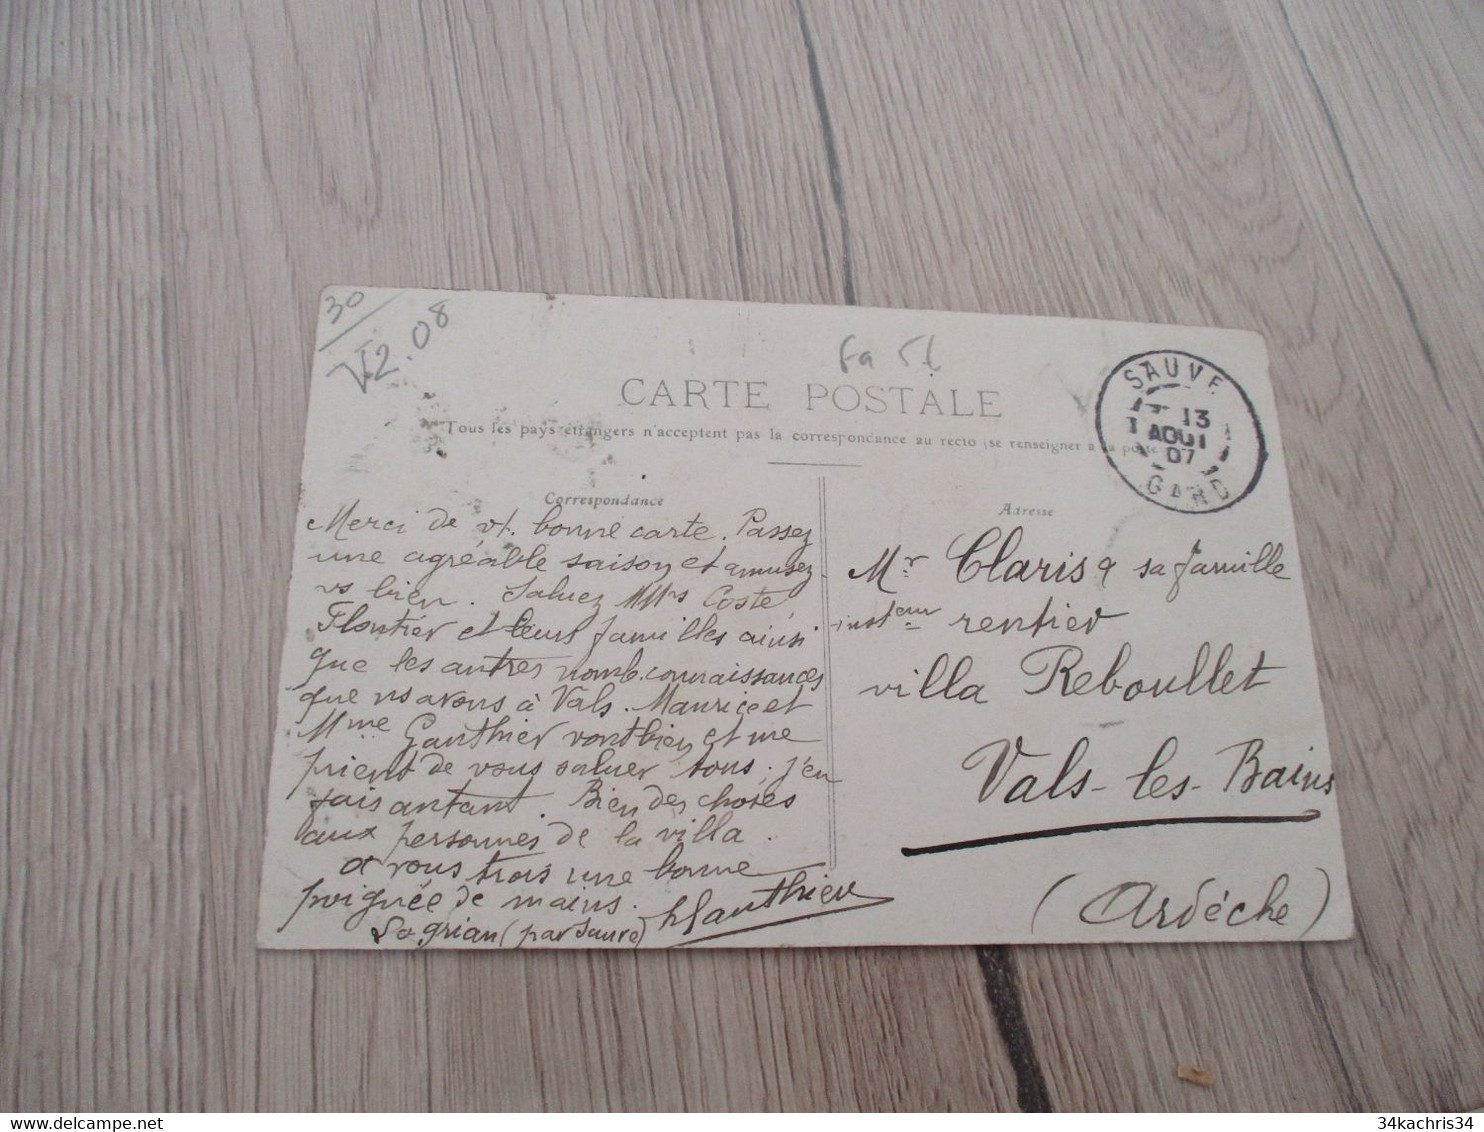 30
V2.08
CARTE POSTALE
Tous les pays étrangers n'acceptent pas la correspondance au recto (se renseigner à la poste
SAUVE
13
AOUT
07
GARD
Correspondance
Merci de vt. bonne carte. Passez
une agréable saison et amusez
vs bien. Saluez MMrs Coste,
Flontier et leurs familles ainsi
que les autres nomb. connaissances
que ns avons à Vals. Maurice et
Mme Gauthier vont bien et me
prient de vous saluer tous. J'en
fais autant. Bien des choses
aux personnes de la villa.
A vous trois une bonne
poignée de mains.
Logrian (par Sauve) Gauthier
Adresse
Mr Claris & sa famille
insteur rentier
villa Reboullet
Vals-les-Bains
(Ardèche)
34kachris34
34kachris34